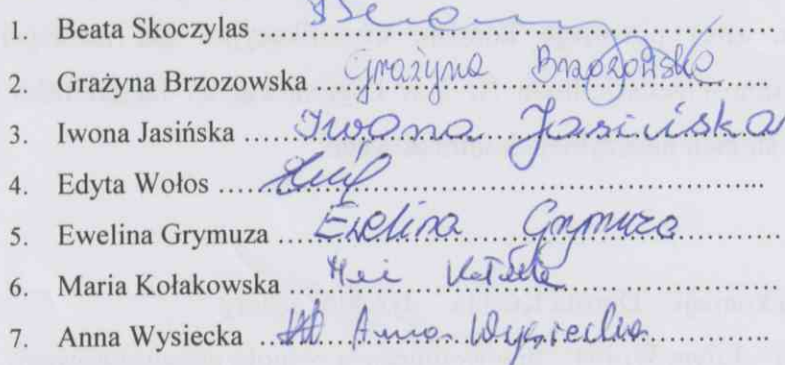 1. Beata Skoczylas ........................
2. Grażyna Brzozowska Grażyna Brzozowska
3. Iwona Jasińska .... Iwona Jasińska
4. Edyta Wołos ........................
5. Ewelina Grymuza ... Ewelina Grymuza
6. Maria Kołakowska ........................
7. Anna Wysiecka .. Anna Wysiecka